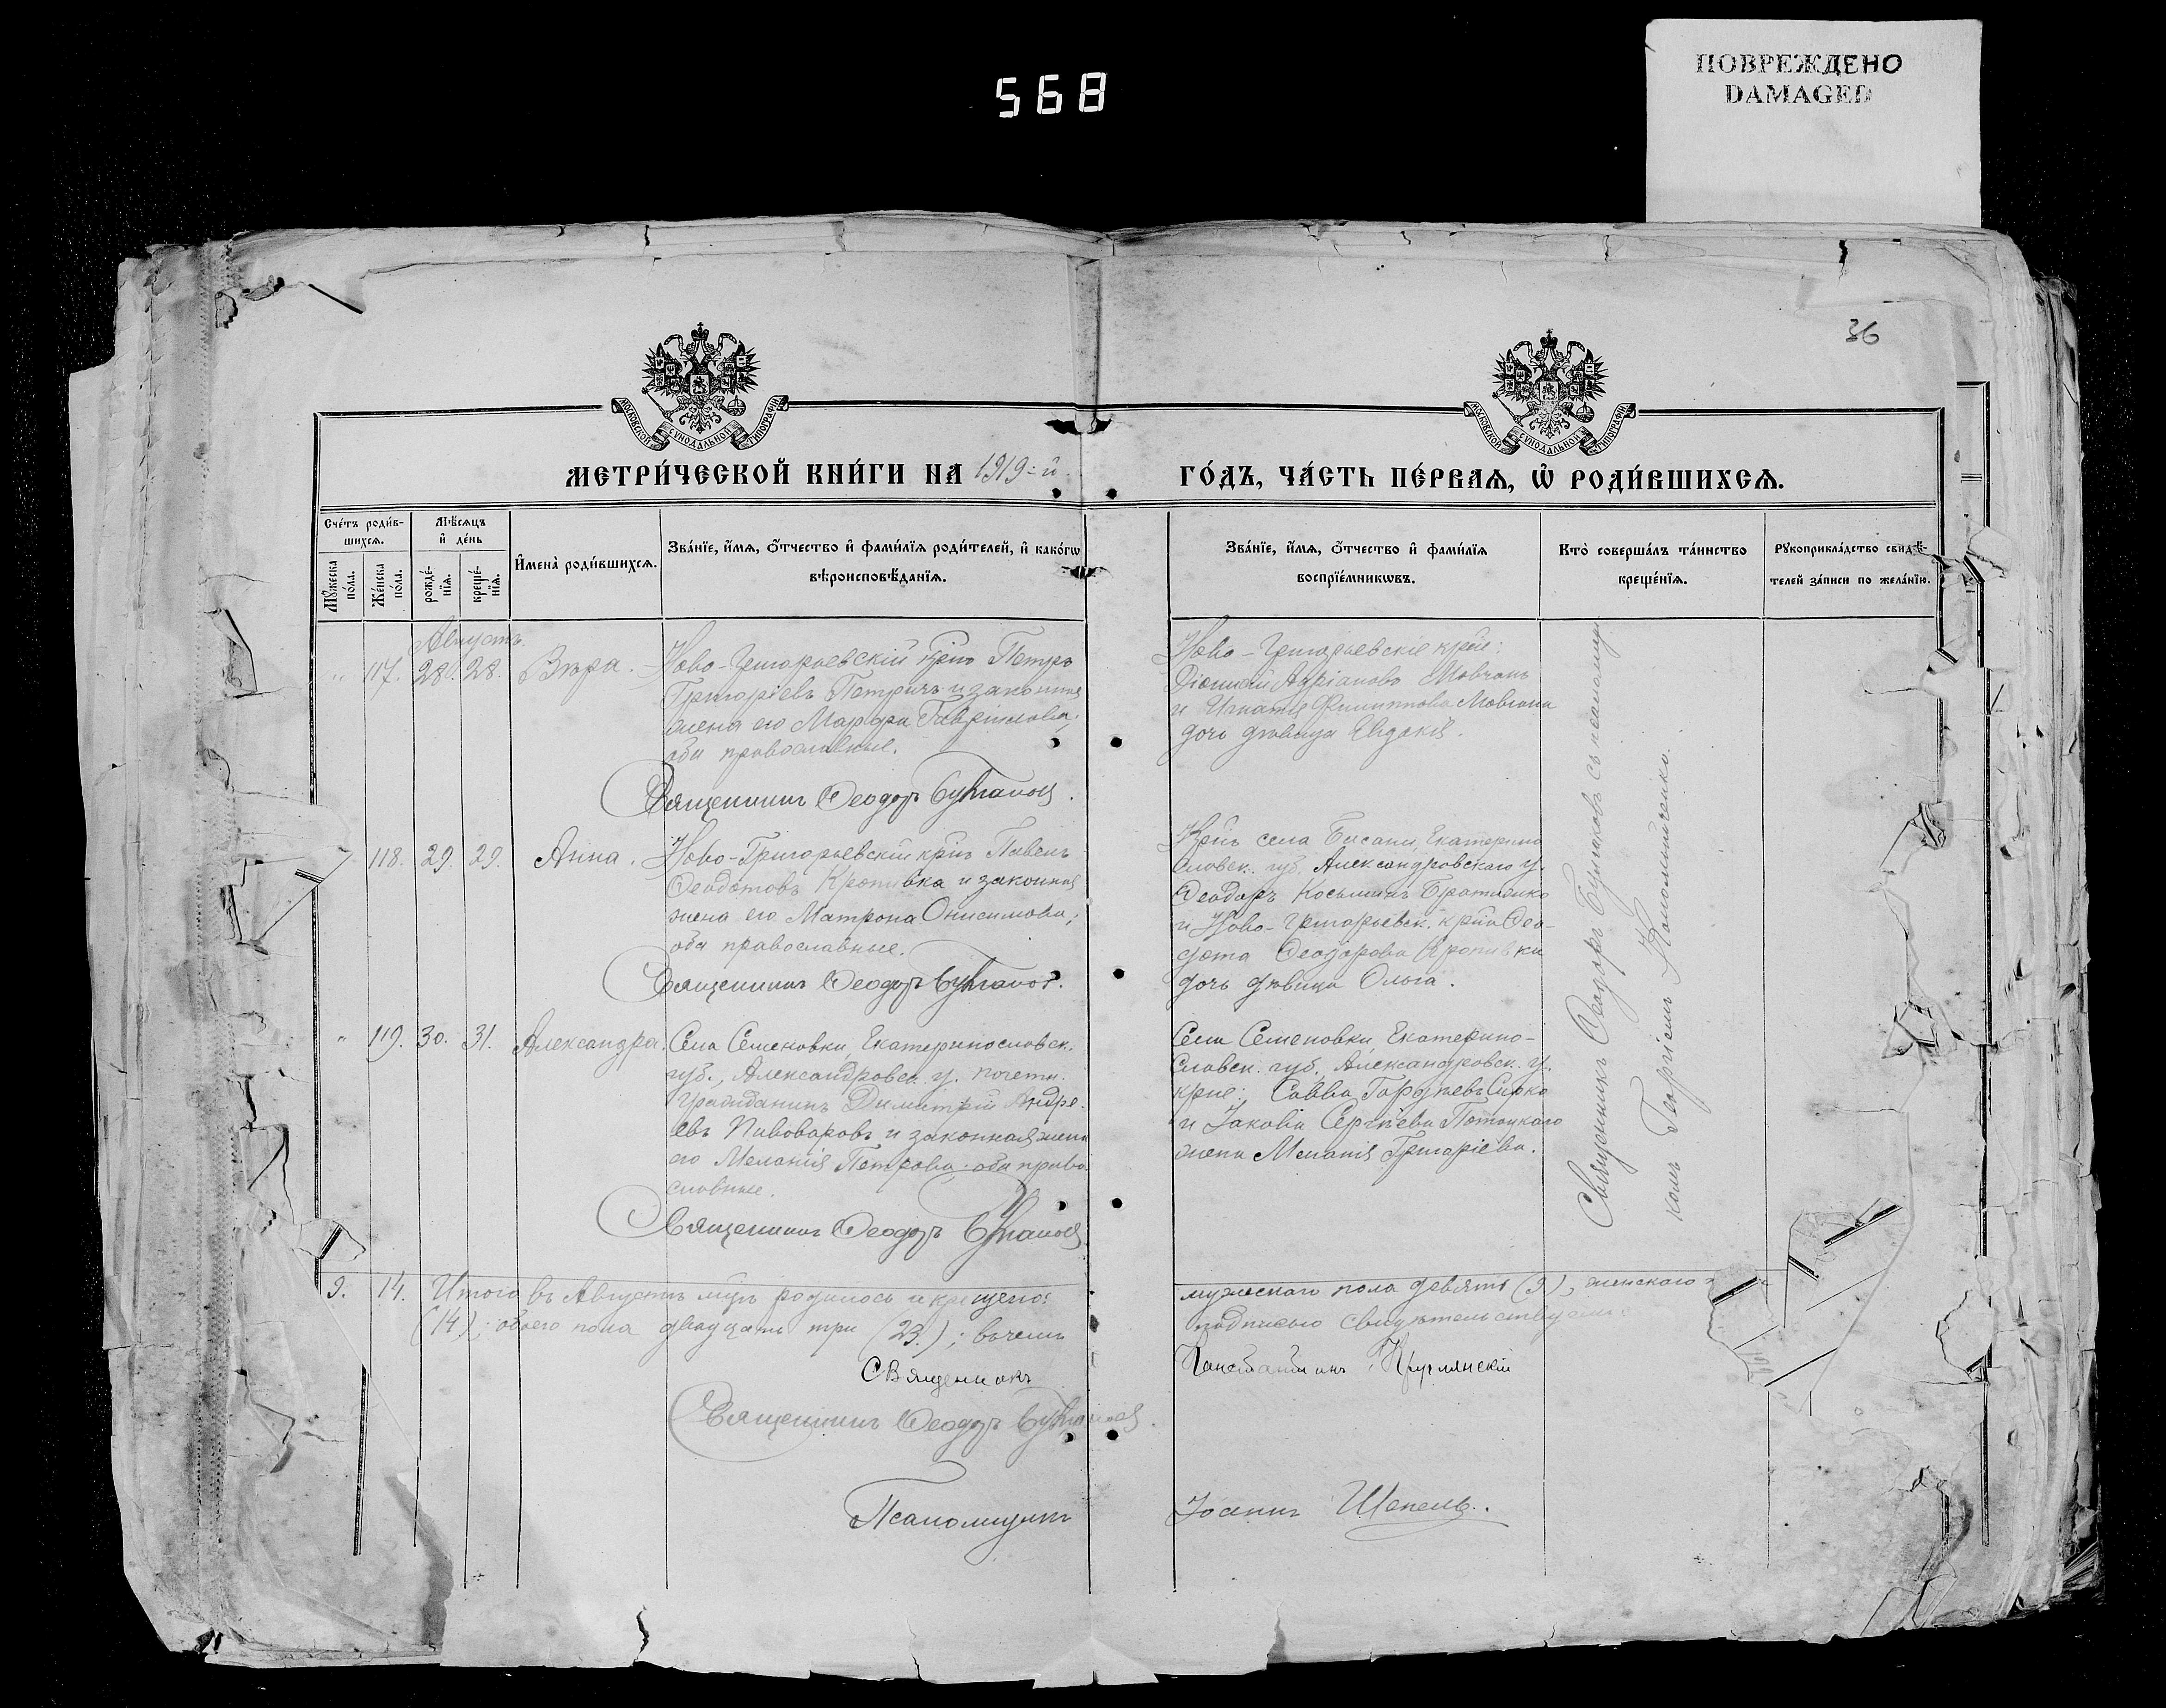 568
ПОВРЕЖДЕНО
DAMAGED
36
МОСКОВСКОЙ СУНОДАЛЬНОЙ ТИПОГРАФІИ
МОСКОВСКОЙ СУНОДАЛЬНОЙ ТИПОГРАФІИ
МЕТРИ́ЧЕСКОЙ КНИ́ГИ НА 1919-й
ГО́ДЪ, ЧА́СТЬ ПЕ́РВАѦ, Ѡ҆ РОДИ́ВШИХСѦ.
Сче́тъ роди́в-
шихсѧ.
Мꙋ́жеска по́ла.
Же́нска по́ла.
Мѣ́сѧцъ
и҆ де́нь
рожде́-нїѧ.
креще́-нїѧ.
И҆мена̀ роди́вшихсѧ.
Зва́нїе, и҆́мѧ, ѻ҆́тчество и҆ фами́лїѧ роди́телей, и҆ како́гѡ
вѣроисповѣ́данїѧ.
Зва́нїе, и҆́мѧ, ѻ҆́тчество и҆ фами́лїѧ
воспрїе́мникѡвъ.
Кто̀ соверша́лъ та́инство
креще́нїѧ.
Рꙋкоприкла́дство свидѣ́-
телей за́писи по жела́нїю.
Августъ
" 117. 28. 28. Вѣра.
Ново-Григорьевскій крнъ Петръ
Григоріевъ Петричъ и законная
жена его Марфа Гавріилова;
оба православные.
Священникъ Ѳеодоръ Булгаковъ.
Ново-Григорьевскіе крне:
Діонисій Адріановъ Мовчанъ
и Игнатія Филиппова Мовчана
дочь дѣвица Евдокія.
118. 29. 29. Анна.
Ново-Григорьевскій крнъ Павелъ
Ѳеодотовъ Кропивка и законная
жена его Матрона Онисимова;
оба православные.
Священникъ Ѳеодоръ Булгаковъ.
Крнъ села Бисани, Екатерино
славск. губ. Александровскаго у.
Ѳеодоръ Косьминъ
и Ново-Григорьевск. крнна Ѳео-
дота Ѳеодорова Кропивки
дочь дѣвица Ольга.
" 119. 30. 31. Александра.
Села Семеновки, Екатеринославск.
губ., Александровск. у. почетн.
гражданинъ Димитрій Андре-
евъ Пивоваровъ и законная жена
его Меланія Петрова; оба право
славные.
Священникъ Ѳеодоръ Булгаковъ.
Села Семеновки, Екатерино-
славск. губ., Александровск. у.
крне: Савва Гордѣевъ Сирко
и Іакова Сергѣева Потоцкаго
жена Меланія Григоріева.
Священникъ Ѳеодоръ Булгаковъ съ псаломщи-
комъ Георгіемъ Коломійченко.
9. 14. Итого въ Августѣ мцѣ родилось и крещено:
мужескаго пола девять (9), женскаго
(14); обоего пола двадцать три (23.); въ чемъ
подписью свидѣтельствуемъ:
Священникъ Константинъ Круглянскій
Священникъ Ѳеодоръ Булгаковъ.
Псаломщикъ Іоаннъ Шепель.